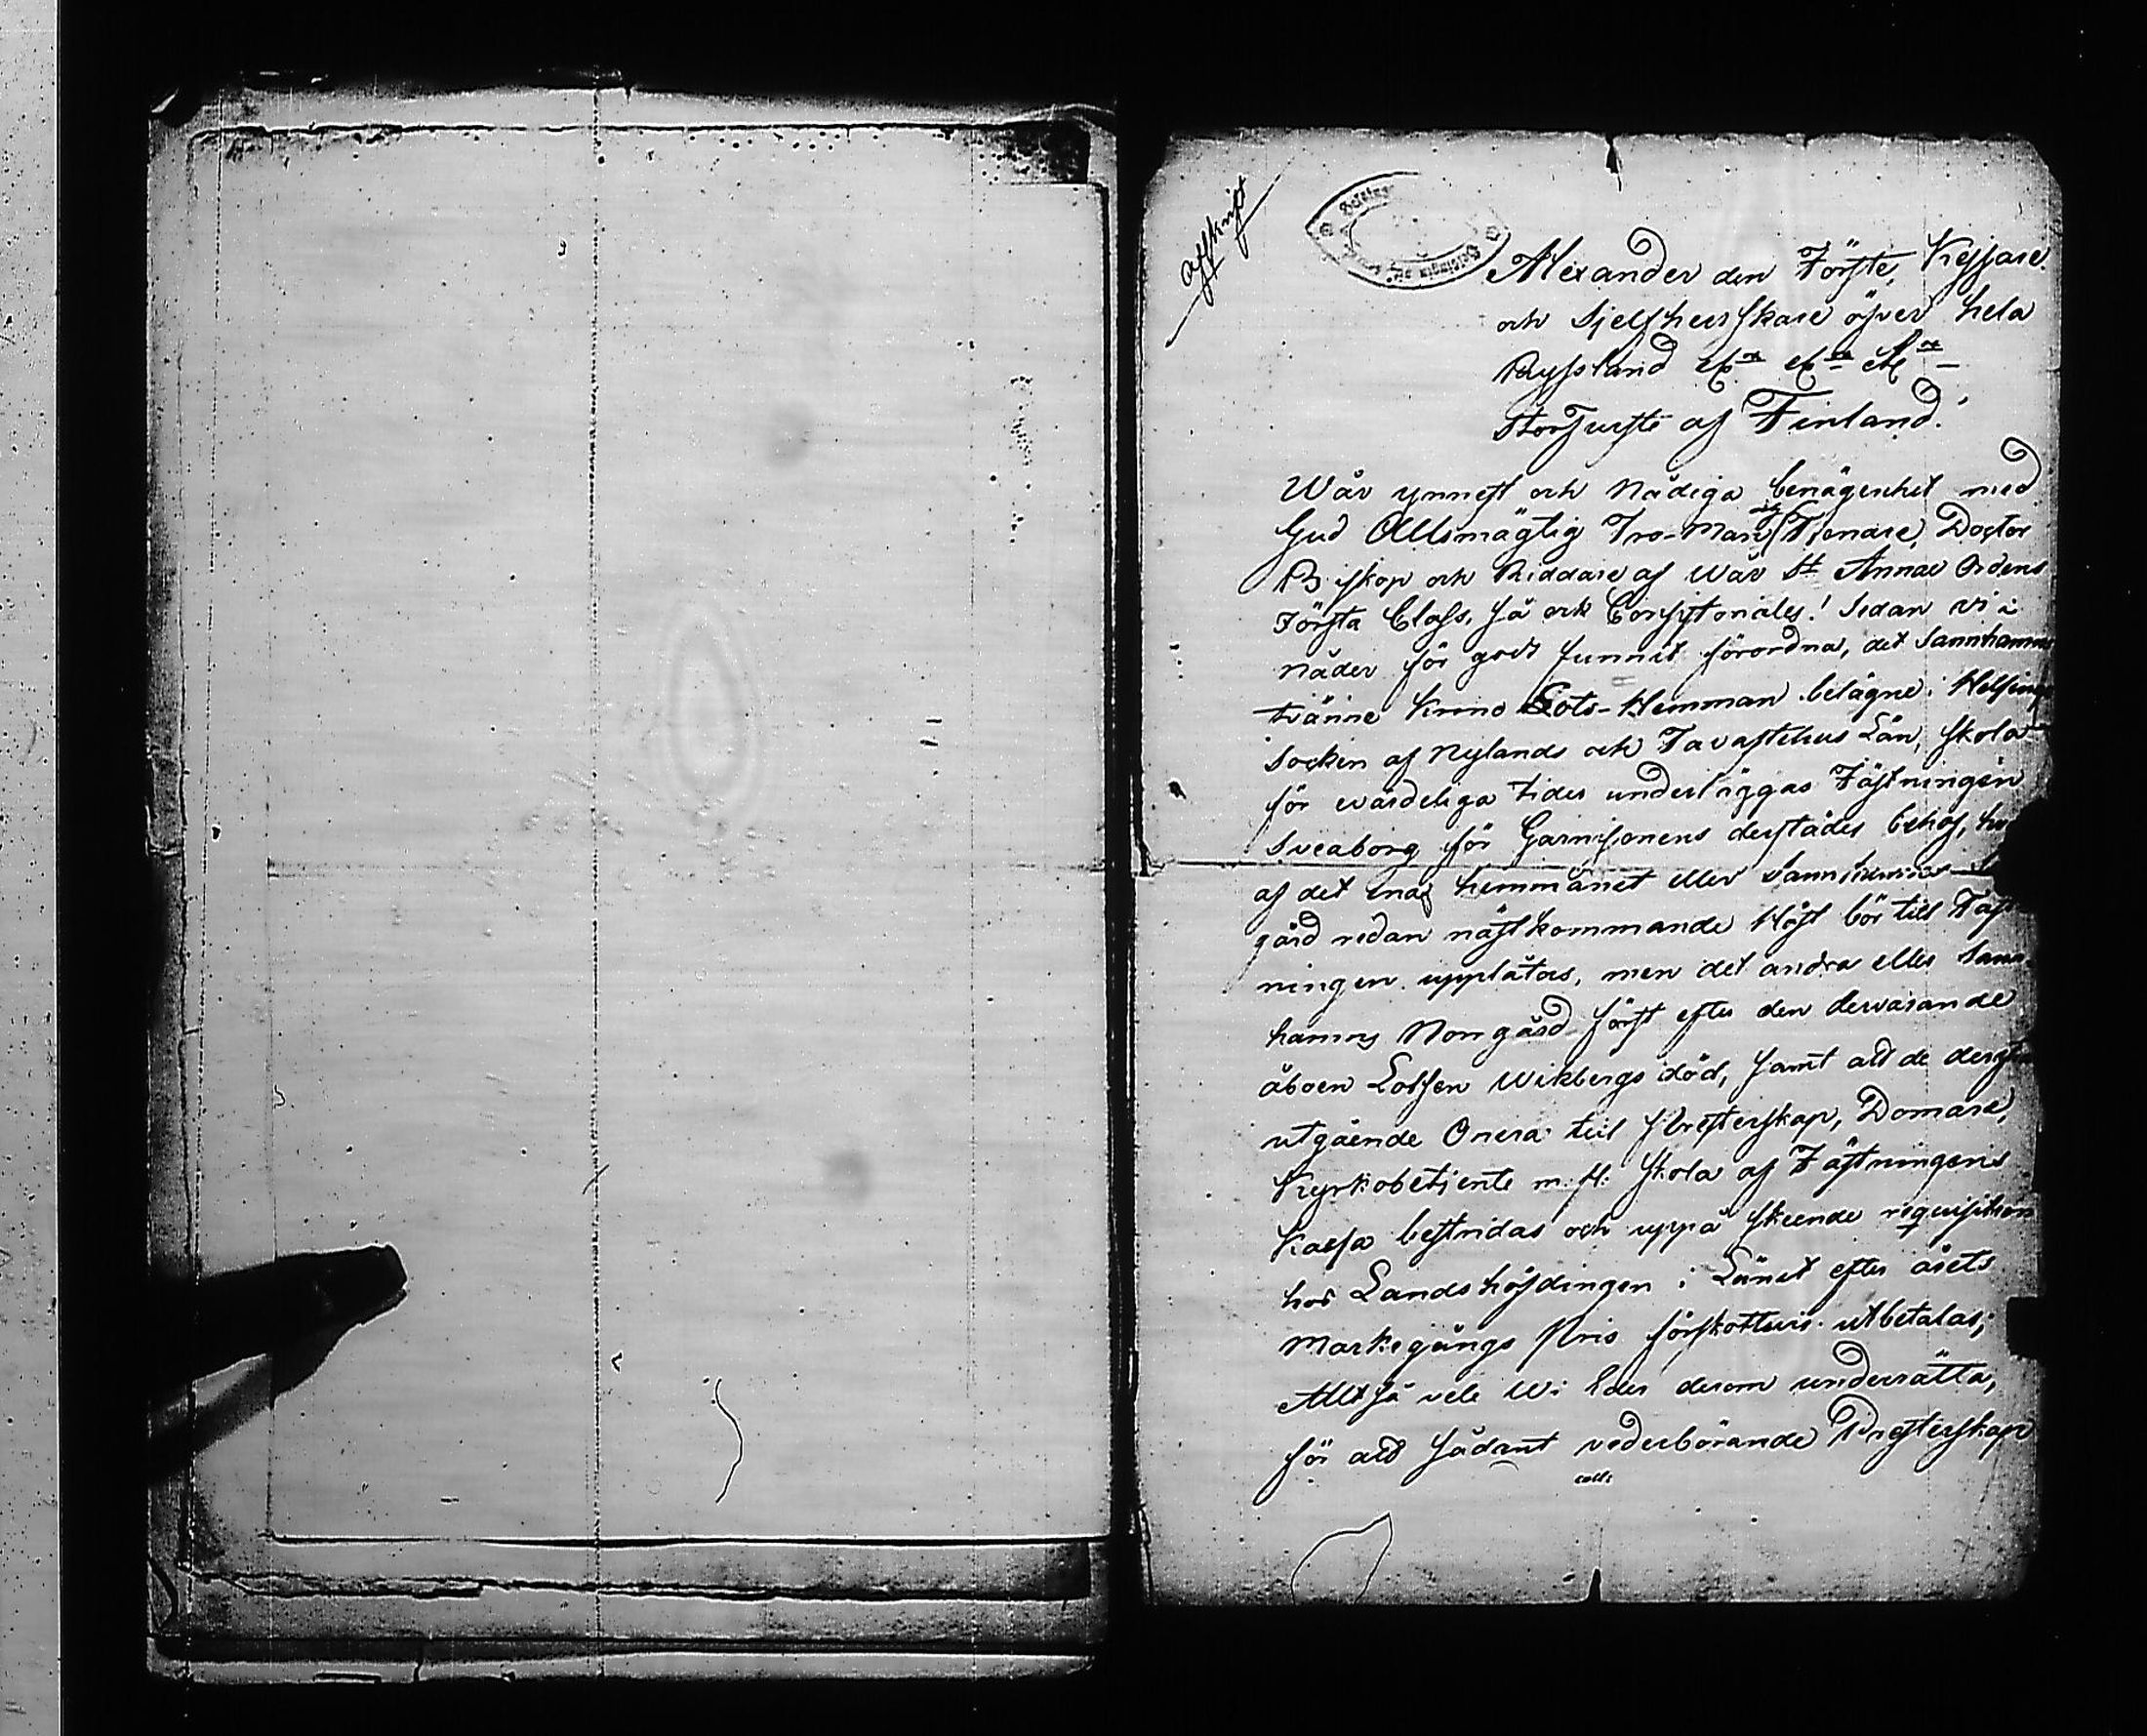 Afskrift
Alexander den Förste, Kejsare
och Sjelfherrskare öfver hela
Ryssland etc etc etc
StorFurste af Finland.
Wår ynnest och Nådiga benägenhet med
Gud Allsmägtig Tro-Man och Tjenare, Doctor
Biskop och Riddare af Wår St Annae Ordens
Första Class, så ock Consistoriales! Sedan vi i
Nåder för godt funnit förordna, det Sannhamns
tvänne Krono Lots-Hemman belägne i Helsinge
Socken af Nylands och Tavastehus Län, skola
för evärdeliga tider underläggas Fästningen
Sveaborg för Garnisonens derstädes behof,
af det ena hemmanet eller Sannhamns
gård redan nästkommande Höst bör till Fäst
ningen upplåtas, men det andra eller Sann
hamns Norrgård först efter den dervarande
åboen Lotsen Wikbergs död, samt att de
utgående Onera till Presterskap, Domare,
Kyrkobetjente m: fl: skola af Fästningens
Kassa bestridas och uppå skeende requisition
hos Landshöfdingen i Länet efter årets
Markegångs Pris förskottvis utbetalas;
Alltså vele Wi Eder derom underrätta,
för att sådant vederbörande Presterskap